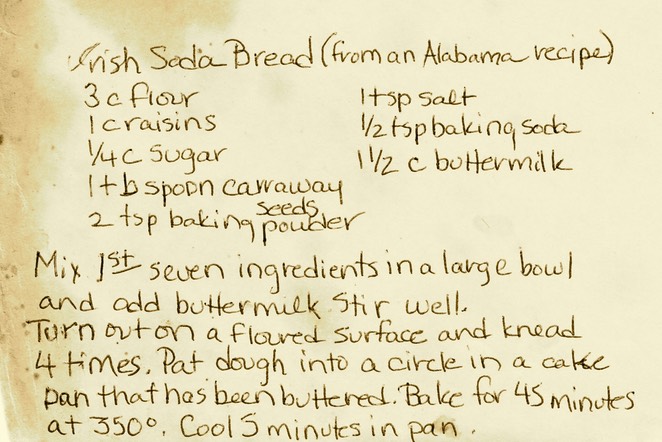 Irish Soda Bread (from an Alabama recipe)
3 c flour
1 c raisins
1/4 c sugar
1 tb spoon carraway seeds
2 tsp baking powder
1 tsp salt
1/2 tsp baking soda
1 1/2 c buttermilk
Mix 1st seven ingredients in a large bowl
and add buttermilk Stir well.
Turn out on a floured surface and knead
4 times. Pat dough into a circle in a cake
pan that has been buttered. Bake for 45 minutes
at 350°. Cool 5 minutes in pan.